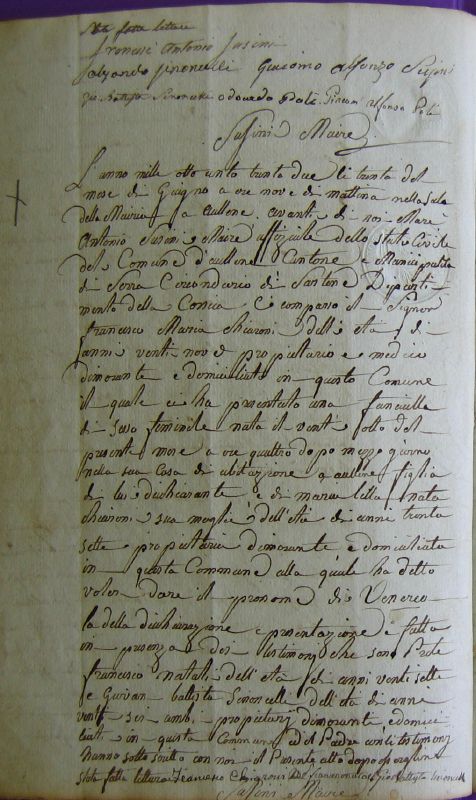 stato fatto lettura
Francesco Antonio Susini
Giacomo Alfonzo
Gio Battista Simoncelli odoardo Poli
Susini Maire
L'anno mille otto cento trenta due li trenta del
mese di Giugno a ore nove di mattina nella Sala
della Mairia a aullene avanti di noi
Antonio Susini Maire uffiziale dello Stato Civile
del Comune d'aullene Cantone e
di Serra Circondario di Sartene Diparti
mento della Corsica, é comparso il Signor
francesco Maria chiaroni dell'età di
anni venti nove propietario e medico
dimorante e domiciliato in questo Comune
il quale ci ha presentato una fanciulla
di sesso feminile nata il venti otto del
presente mese a ore quattro dopo mezzo giorno
nella sua Casa di abitazione a aullene figlia
di lui dichiarante e di maria lella nata
chiaroni sua moglie dell'età di anni trenta
sette propietaria dimorante e domiciliata
in questa Commune alla quale ha detto
voler dare il pronome di
la detta dichiarazione e presentazione é fatta
in presenza di doi testimonj che sono
francesco natali dell'età di anni venti sette
e Giovan battista Simoncelli dell'età di anni
venti sei ambi propietarj dimoranti e domici
liati in questa Commune ed il Padre e li testimonj
hanno sotto scritto con noi il Presente atto dopo
stato fatto lettura francesco Gio Battista
Susini Maire